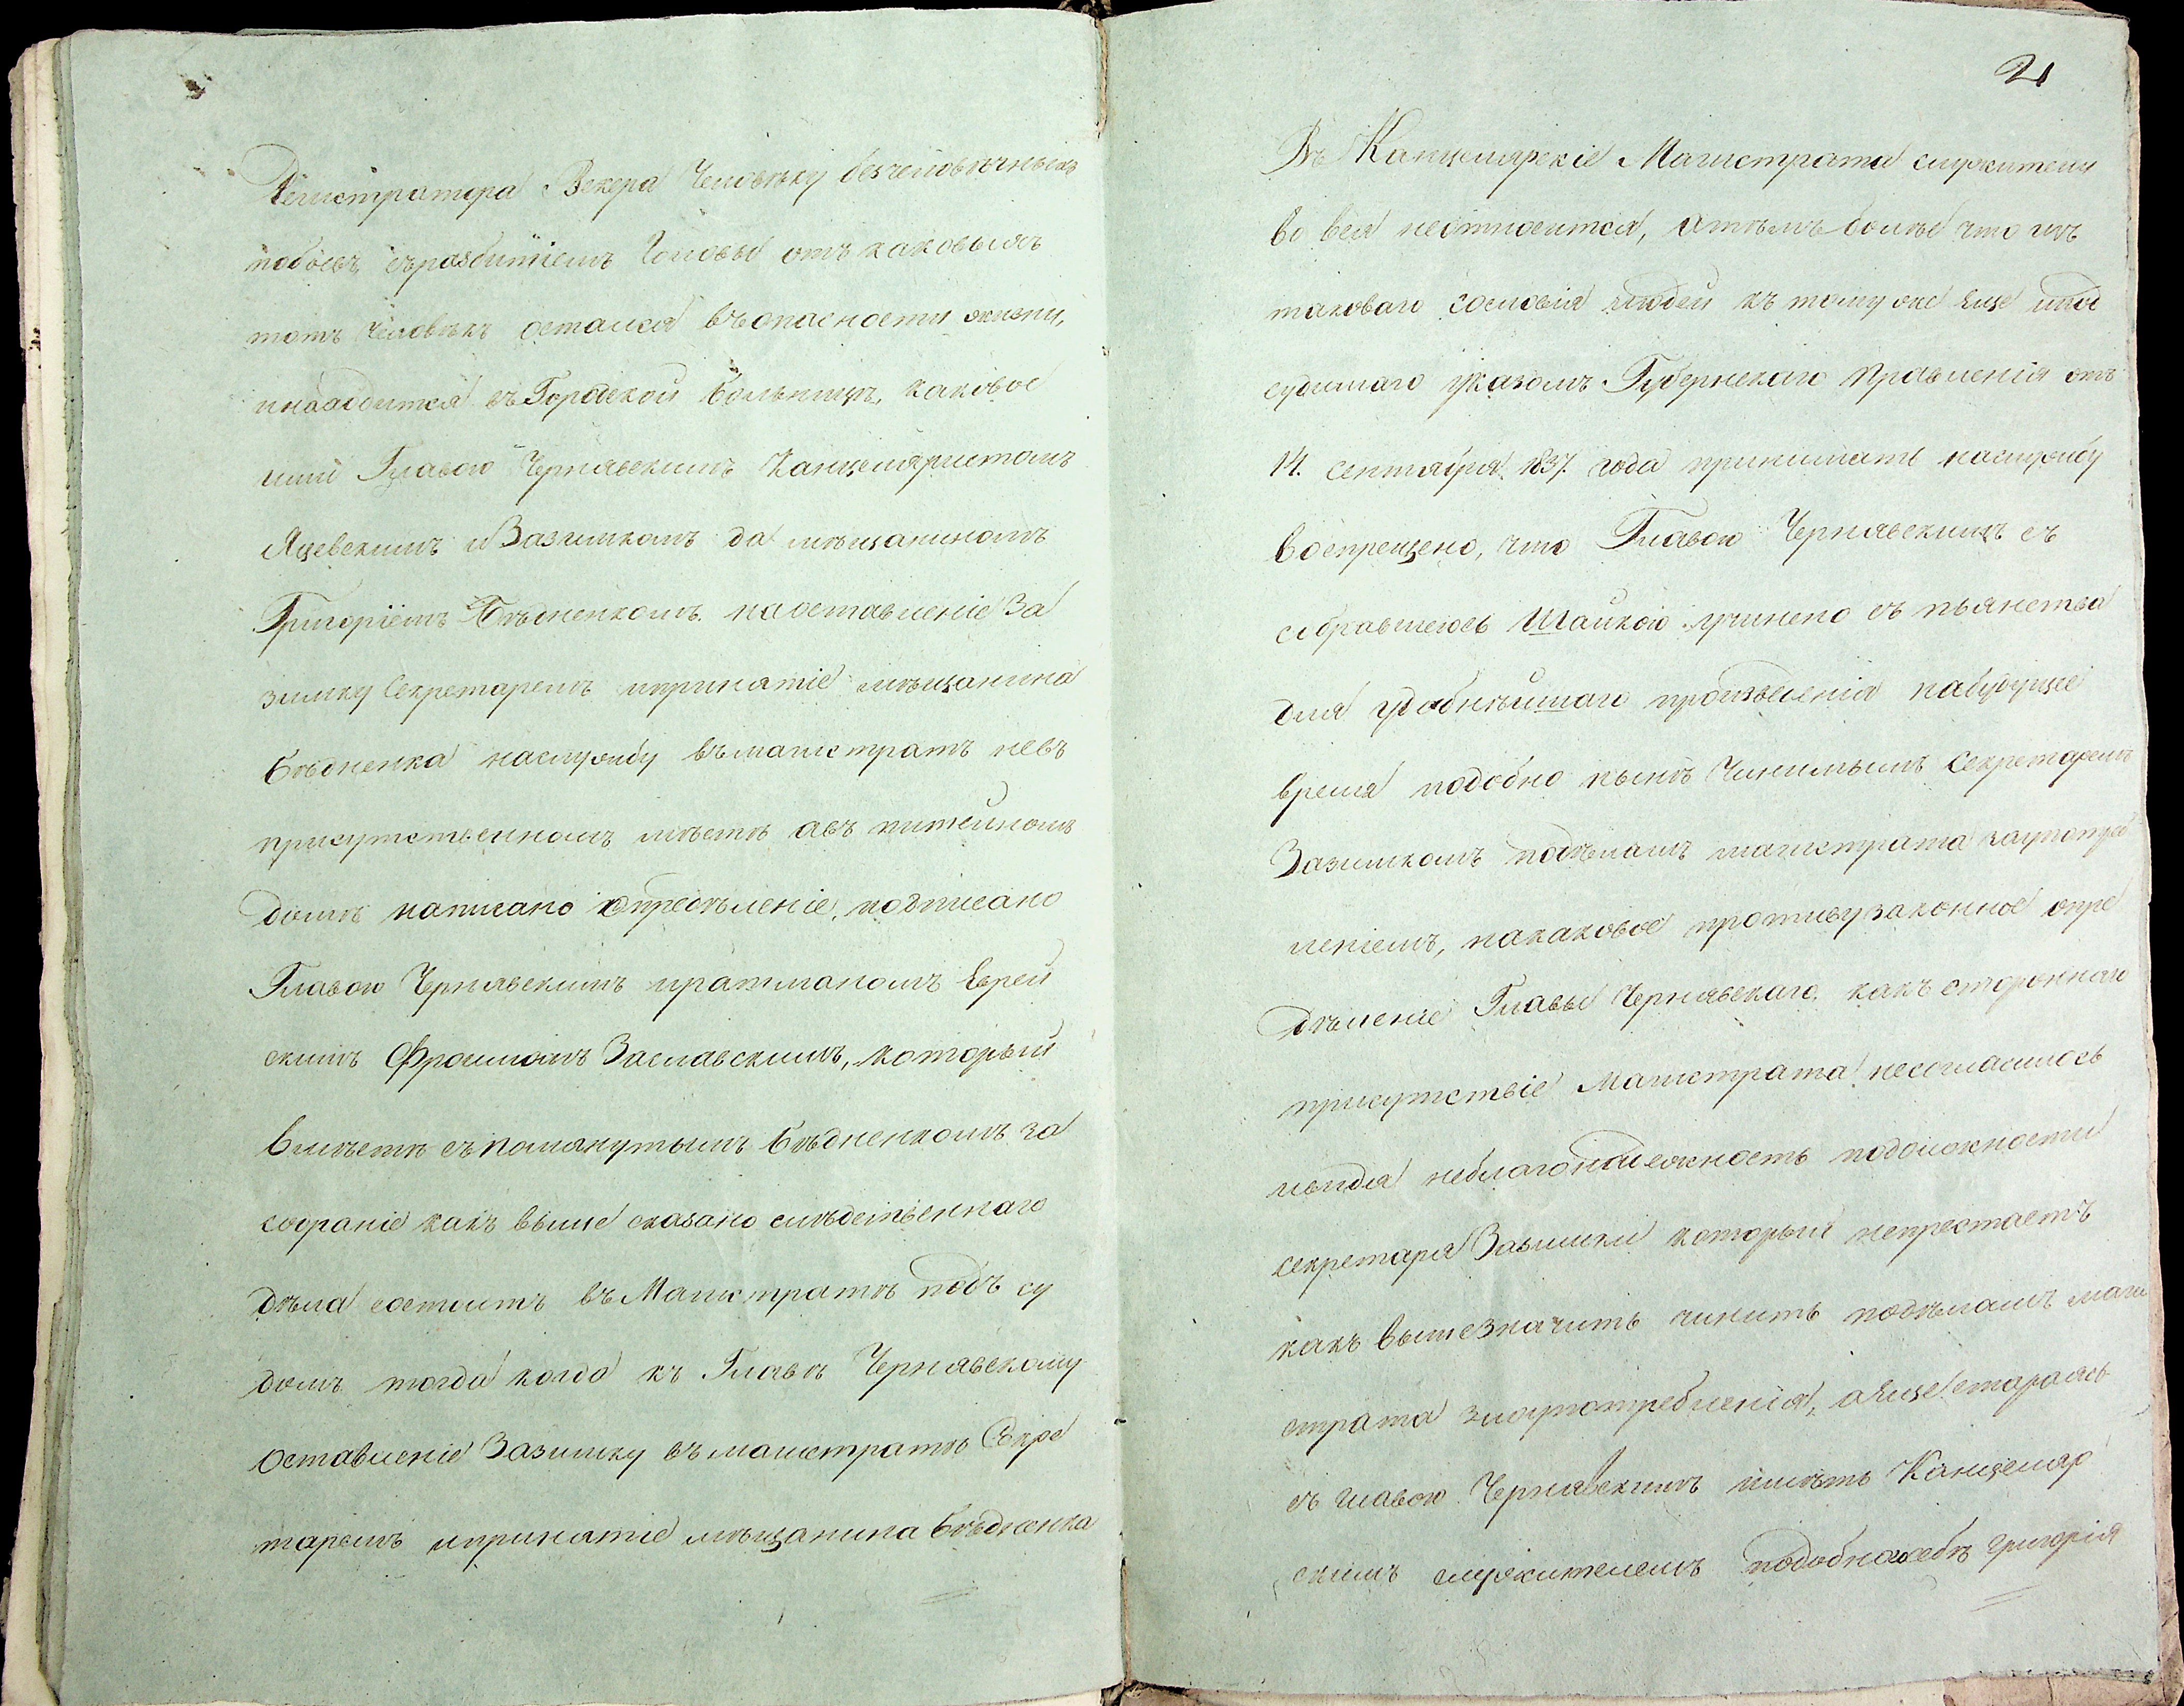 Регистратора Векера Человѣку безчеловѣчныхъ
побоевъ съразбитіемъ Головы отъ каковыхъ
тотъ человѣкъ остался въопасности жизни,
инаходится въ Городской больницѣ, каковое
ими Главою Чернявскимъ Канцеляристомъ
Яцевскимъ иЗазимкомъ да мѣщаниномъ
Григоріемъ Бѣдненкомъ наоставленіе За
зимку Секретаремъ ипринятіе мѣщанина
Бѣдненка наслужбу въмагистратъ невъ
присутственномъ мѣстѣ авъ питейномъ
домѣ написано опредѣленіе, подписано
Главою Чернявскимъ иратманомъ Еврей
скимъ Фроимомъ Заславскимъ, который
вмѣстѣ съпомянутымъ Бѣдненкомъ за
кодраніе какъ выше сказано слѣдственнаго
дѣла состоитъ въ Магистратѣ подъ су
домъ тогда когда къ Главѣ Чернявскому
Оставленіе Зазимку въмагистратѣ Секре
таремъ ипринятіе мѣщанина Бѣдненка
2
Въ Канцелярскіе Магистрата служители
во вся неотносится, атѣмъ болѣе что изъ
таковаго сословія людей къ томуже еще
судимаго указомъ Губернскаго Правленія отъ
14. сентября 1837. года принимать наслужбу
воспрещено, что Главою Чернявскимъ съ
собравшеюсь Шайкою учинено въ пьянства
для удобнѣйшаго произведенія набудущее
время подобно нынѣ Чинимымъ Секретаремъ
Зазимкомъ подѣламъ магистрата
леніемъ, накаковое противузаконное опре
дѣленіе Главы Чернявскаго какъ сторонняго
присутствіе Магистрата несогласилось
видя неблагонадежность подолжности
секретаря Зазимки который непрестаетъ
какъ вышеЗначитъ чинить подѣламъ маги
страта злоупотребленія, аЕще стараясь
съ главою Чернявскимъ имѣть Канцеляр
скимъ служителемъ подобнагосебѣ Григорія